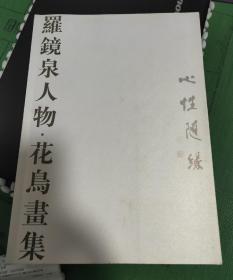 羅鏡泉人物·花鳥畫集
心性隨緣